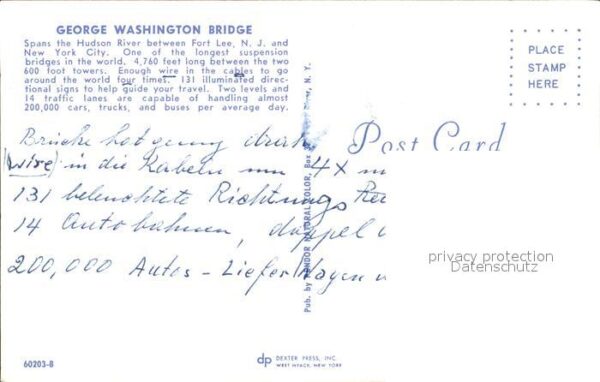 GEORGE WASHINGTON BRIDGE
Spans the Hudson River between Fort Lee, N. J. and
New York City. One of the longest suspension
bridges in the world. 4,760 feet long between the two
600 foot towers. Enough wire in the cables to go
around the world four times. 131 illuminated direc-
tional signs to help guide your travel. Two levels and
14 traffic lanes are capable of handling almost
200,000 cars, trucks, and buses per average day.
PLACE
STAMP
HERE
Post Card
Brücke hat genug draht
(wire) in die Kabeln um 4x
131 beleuchtete Richtungs
14 Autobahnen, doppel
200,000 Autos - Liefer Wagen
Pub. by MANDOR NATURAL COLOR, Box N. Y.
privacy protection
Datenschutz
60203-B
dp DEXTER PRESS, INC.
WEST NYACK, NEW YORK